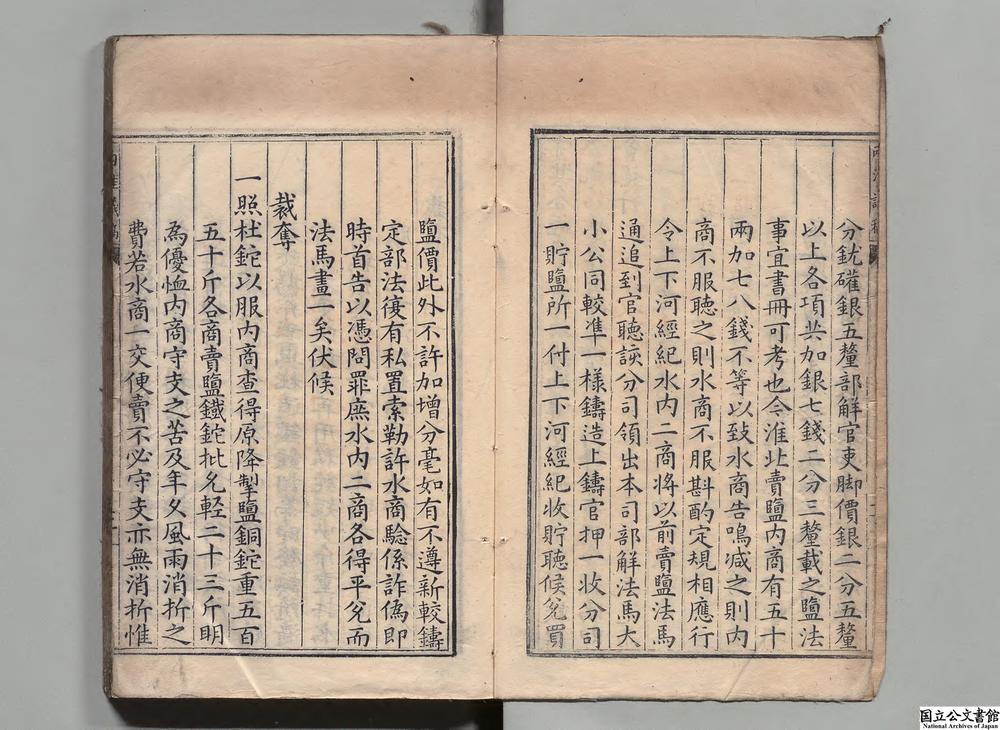 分鈂礶銀五釐部解官吏脚價銀二分五釐
以上各項共加銀七錢二分三釐載之鹽法
事宜書冊可考也今淮北賣鹽内商有五十
兩加七八錢不等以致水商告鳴减之則内
商不服聽之則水商不服斟酌定規相應行
令上下河經紀水内二商將以前賣鹽法馬
通追到官聽該分司領出本司部解法馬大
小公同較準一樣鑄造上鑄官押一收分司
一貯鹽所一付上下河經紀收貯聽候兌買
鹽價此外不許加增分毫如有不遵新較鑄
定部法復有私置索勒許水商驗係詐偽即
時首告以憑問罪庶水内二商各得平兌而
法馬畫一矣伏候
裁奪
一照杜鉈以服内商查得原降掣鹽銅鉈重五百
五十斤各商賣鹽鐵鉈批允輕二十三斤明
為優恤内商守支之苦及年久風雨消折之
費若水商一交便賣不必守支亦無消折惟
國立公文書館
National Archives of Japan